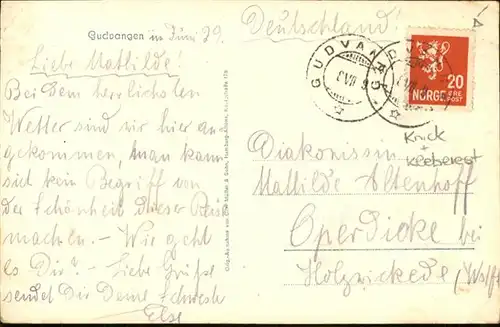 Gudvangen im Juni 39.
Deutschland!
Liebe Mathilde!
Bei dem herrlichsten
Wetter sind wir hier an-
gekommen, man kann
sich kein Begriff von
der Schönheit dieser Reise
machen. - Wie geht
es Dir? - Liebe Grüße
sendet Dir Deine Schwester
Else
GUDVANGEN
20
ØRE
NORGE POST
Knick
+
Kleberest
Diakonissin
Mathilde Altenhoff
Operdicke bei
Holzwickede (Westf